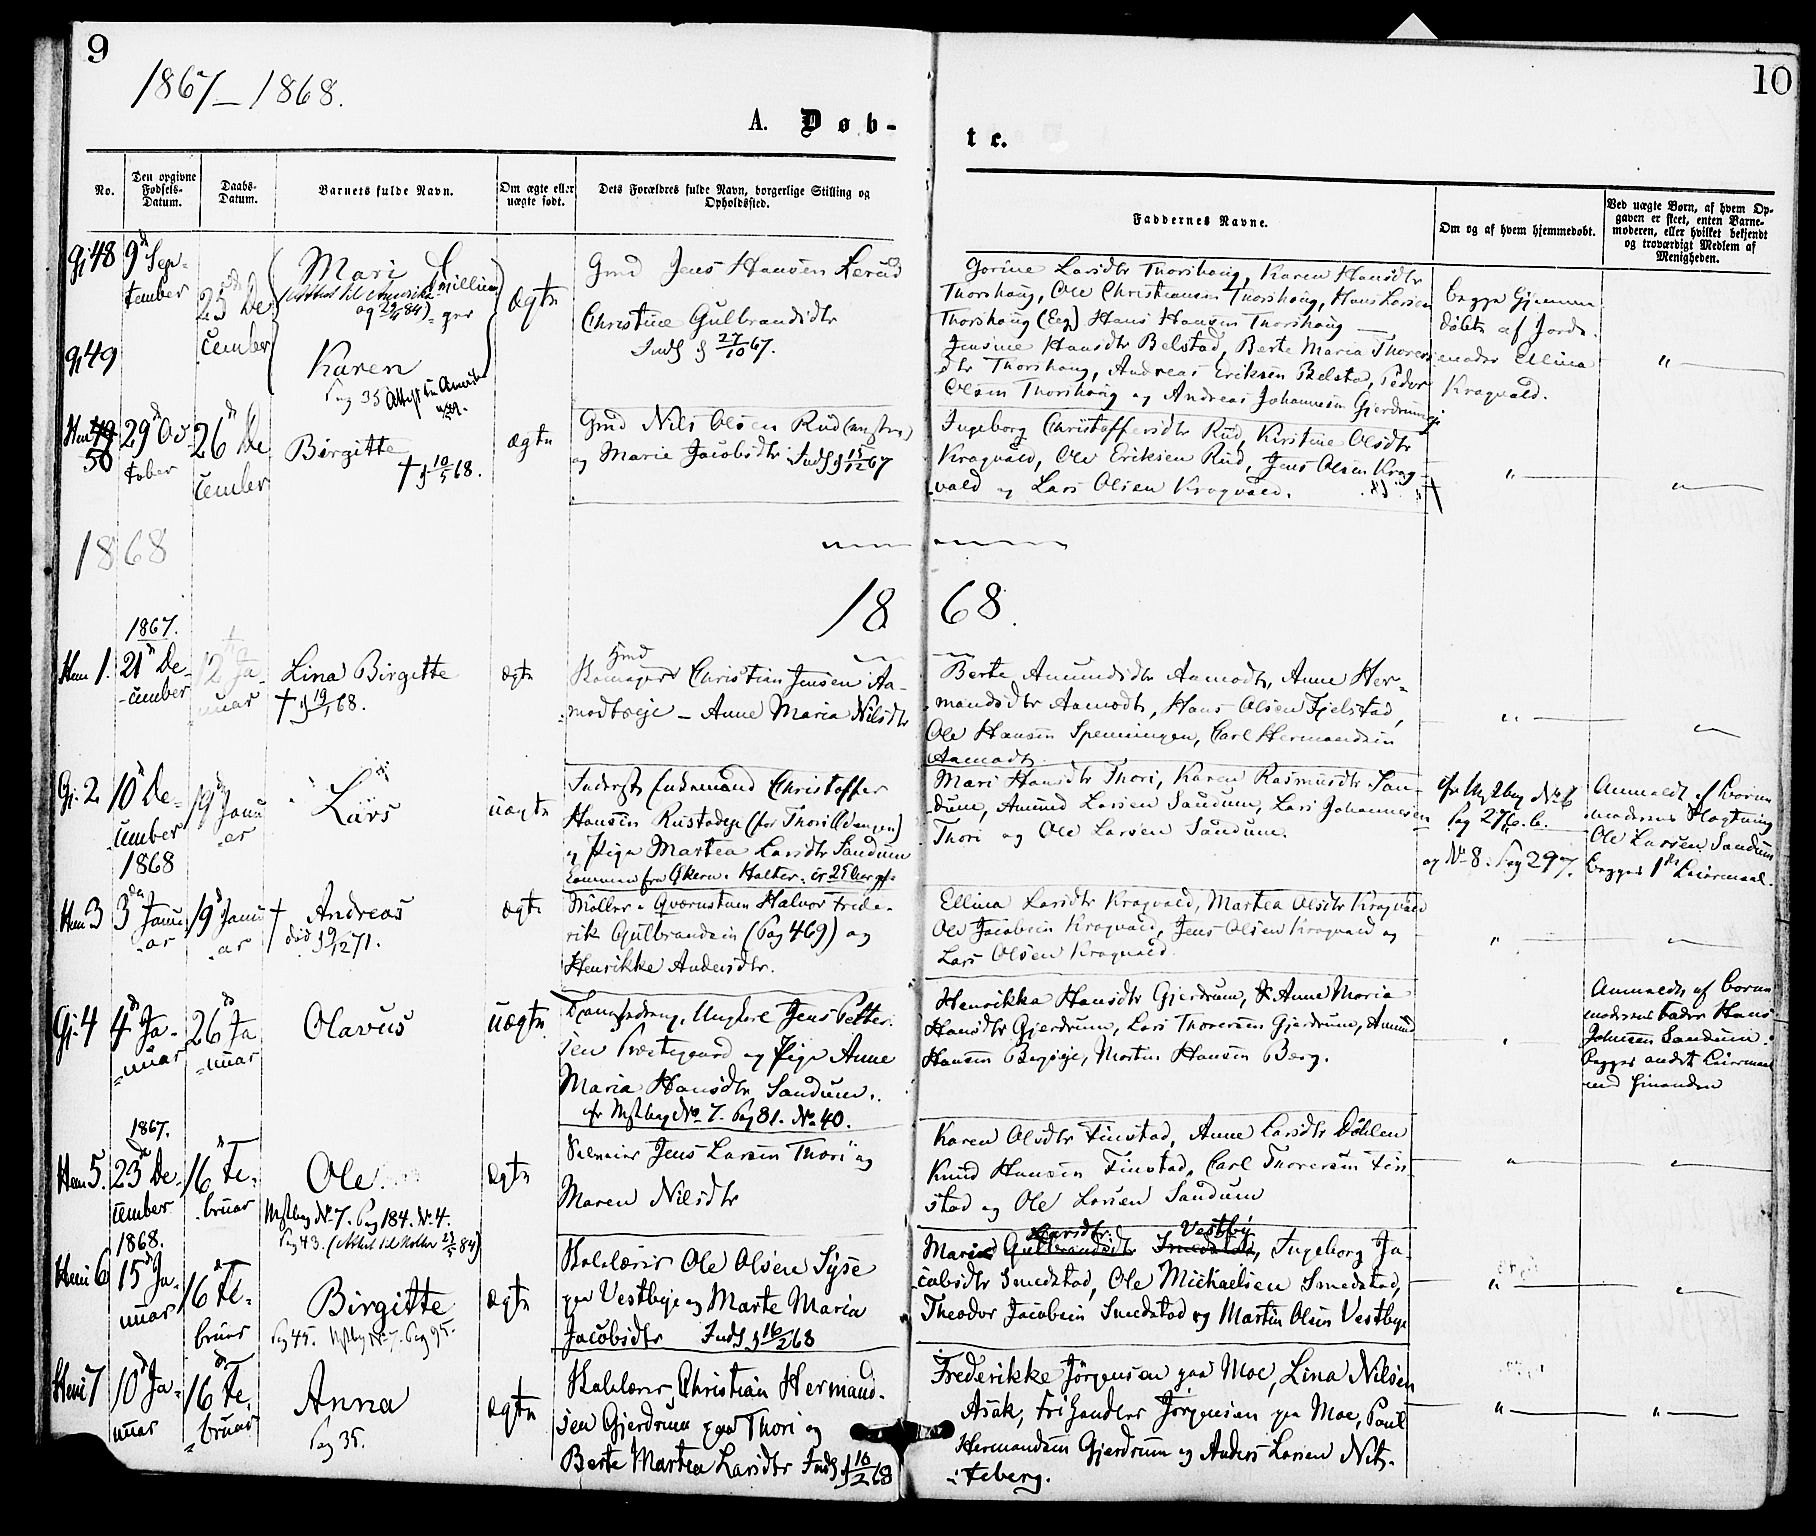 9
10
1867–1868.
A. Døb-
te.
No.
Den opgivne Fødsels-Datum.
Daabs-Datum.
Barnets fulde Navn.
Om ægte eller uægte født.
Dets Forældres fulde Navn, borgerlige Stilling og Opholdssted.
Faddernes Navne.
Om og af hvem hjemmedøbt.
Ved uægte Børn, af hvem Op-
gaven er skeet, enten Barne-
moderen, eller hvilket bekjendt
og troværdigt Medlem af
Menigheden.
Gj 48
9d Sep-
tember
25d De
cember
Mari
Tvillin-
ger
Gj 49
Karen
Pag 35 Attest til Amerika
ægte
Gmd Jens Hansen Lerud
Christine Gulbrandsdtr
Inds § 27/10 67.
Gorine Larsdtr Thorshoug, Karen Hansdtr
Thorshoug, Ole Christiansen Thorshoug, Hans Larsen
Thorshoug (Eeg) Hans Hansen Thorshoug —
Jensine Hansdtr Belstad, Berte Maria Thores
dtr Thorshoug, Andreas Eriksen Belstad, Peder
Olsen Thorshoug og Andreas Johannesen Gjerdrum
begge Hjemme
døbte af Jorde-
moder Ellina
Kragvald.
" —
Hem 49
50
29d Oc
tober
26d De
cember
Birgitte
† § 10/5 68.
ægte
Gmd Nils Olsen Rud
og Marie Jacobsdtr Inds § 15/12 67
Ingeborg Christoffersdtr Rud, Kirstine Olsdtr
Kragvald, Ole Eriksen Rud, Jens Olsen Krag-
vald og Lars Olsen Kragvald.
" —
" —
1868
18 68.
1867.
Hem 1.
21d De-
cember
12 Ja-
nuar
Lina Birgitte
† § 19/1 68.
ægte
Gmd
Christian Jensen Aa-
modtseje – Anne Maria Nilsdtr
Berte Amundsdtr Aamodt, Anne Her-
mandsdtr Aamodt, Hans Olsen Fjelstad,
Ole Hansen Spenningen, Carl Hermandsen
Aamodt.
" —
Gj. 2
10d De-
cember
19d Janu
er
Lars
uægte
Inderst Enkemand Christoffer
Hansen Rustadeje (for Thorilldengen)
og Pige Martea Larsdtr Sandum
kommen fra Holter. er 25
Mari Hansdtr Thori, Karen Rasmusdtr San-
dum, Amund Larsen Sandum, Lars Johannesen
Thori og Ole Larsen Sandum.
No 6
Pag 276. b.
og No 8. Pag 297.
Anmeldt af Barne
moderens
Ole Larsen Sandum
begges 1ste Leiermaal.
1868
Hem 3
3die Janu
ar
19d Janu
ar
† Andreas
død § 9/12 71.
ægte
Møller i Qvernstuen Halvor Frede-
rik Gulbrandsen (Pag 469) og
Henrikke Andersdtr.
Ellina Larsdtr Kragvald, Martea Olsdtr Kragvald
Ole Jacobsen Kragvald, Jens Olsen Kragvald og
Lars Olsen Kragvald.
" —
Gj. 4
4d Ja-
nuar
26d Ja
nuar
Olavus
uægte
Ungkarl Jens Petter-
sen Prestegaard og Pige Anne
Maria Hansdtr Sandum.
No. 7. Pag 81. No. 40.
Henrikka Hansdtr Gjerdrum, Anne Maria
Hansdtr Gjerdrum, Lars Thoresen Gjerdrum, Amund
Hansen Bergseje, Morten Hansen Berg.
Anmeldt af Barne
moderens Fader Hans
Johnsen Sandum.
begges andet Leiermaal
med hinanden
1867.
Hem 5.
23d De-
cember
16d Fe-
bruar
Ole
No. 7. Pag 184. No. 4.
Pag 43. (Attest til Holter 84)
ægte
Selveier Jens Larsen Thori og
Maren Nilsdtr
Karen Olsdtr Finstad, Anne Larsdtr Döhlen
Knud Hansen Finstad, Carl Thoresen Fin
stad og Ole Larsen Sandum
1868.
Hem 6
15d Ja-
nuar
16d Fe-
bruar
Birgitte
Pag 45. No. 7. Pag 95.
ægte
Skolelærer Ole Olsen Syse
paa Vestbyeje og Marte Maria
Jacobsdtr Inds § 16/2 68
Larsdtr Vestby
Maria Gulbrandsdtr Smedstad, Ingeborg Ja-
cobsdtr Smedstad, Ole Michaelsen Smedstad,
Theodor Jacobsen Smedstad og Martin Olsen Vestbye
" —
Hem 7
10d Ja-
nuar
16d Fe-
bruar
Anna
Pag 35.
ægte
Skolelærer Christian Hermand-
sen Gjerdrum paa Thori og
Berte Martea Larsdtr Inds § 16/2 68
Frederikke Jørgensen paa Moe, Lina Nilsen
Asak, Frihandler Jørgensen paa Moe, Paul
Hermandsen Gjerdrum og Anders Larsen Nit-
teberg.
" —
" —